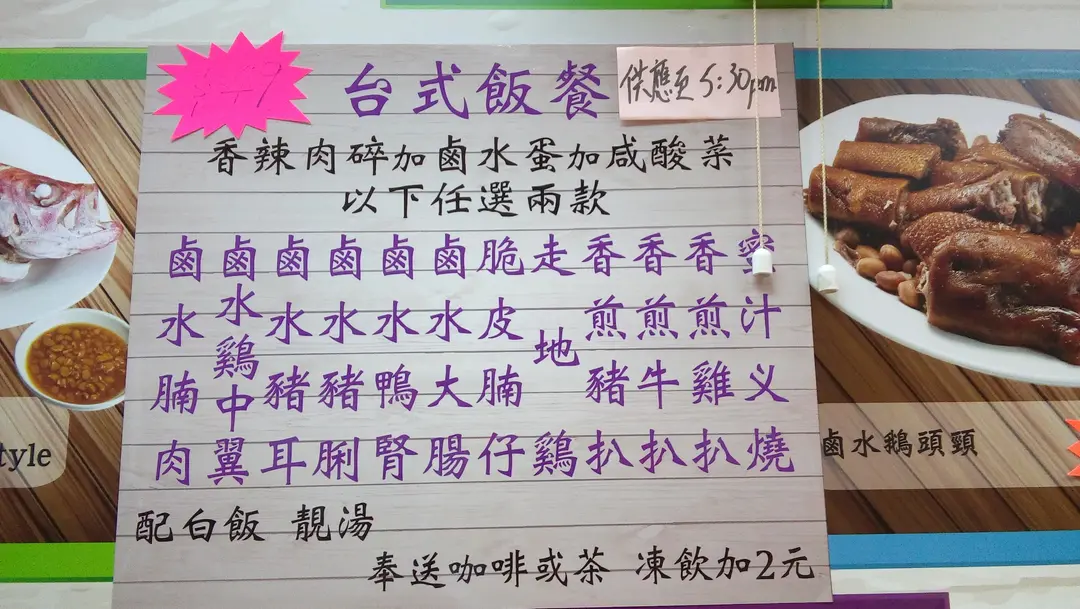 台式飯餐
供應至5:30pm
香辣肉碎加鹵水蛋加咸酸菜
以下任選兩款
鹵水腩肉
鹵水鷄中翼
鹵水豬耳
鹵水豬脷
鹵水鴨腎
鹵水大腸
脆皮腩仔
走地鷄
香煎豬扒
香煎牛扒
香煎雞扒
蜜汁义燒
配白飯 靚湯
奉送咖啡或茶 凍飲加2元
tyle
鹵水鵝頭頸